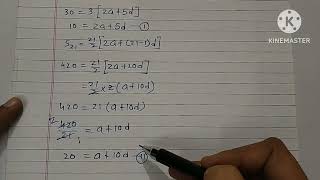 30 = 3 [2a+5d]
10 = 2a+5d —(I)
S₂₁ = 21/2 [2a+(21-1)d]
420 = 21/2 [2a+20d]
= 21/2 × 2 (a+10d)
420 = 21 (a+10d)
420/21 = a+10d
20 = a+10d —(II)
KINEMASTER